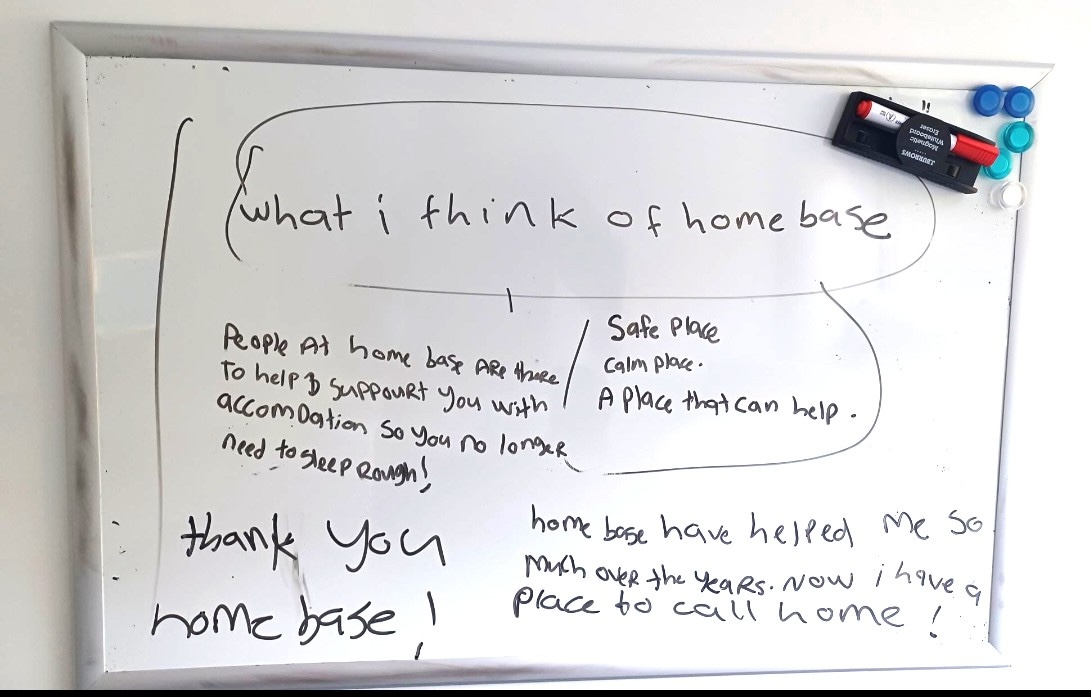 what i think of home base
People At home base ARe there
to help & suppourt you with
accomDation so you no longer
need to sleep Rough!
Safe Place
calm place.
A Place that can help.
thank you
home base!
home base have helped me so
much over the years. Now i have a
place to call home!
J.BURROWS
Magnetic
Whiteboard
Eraser